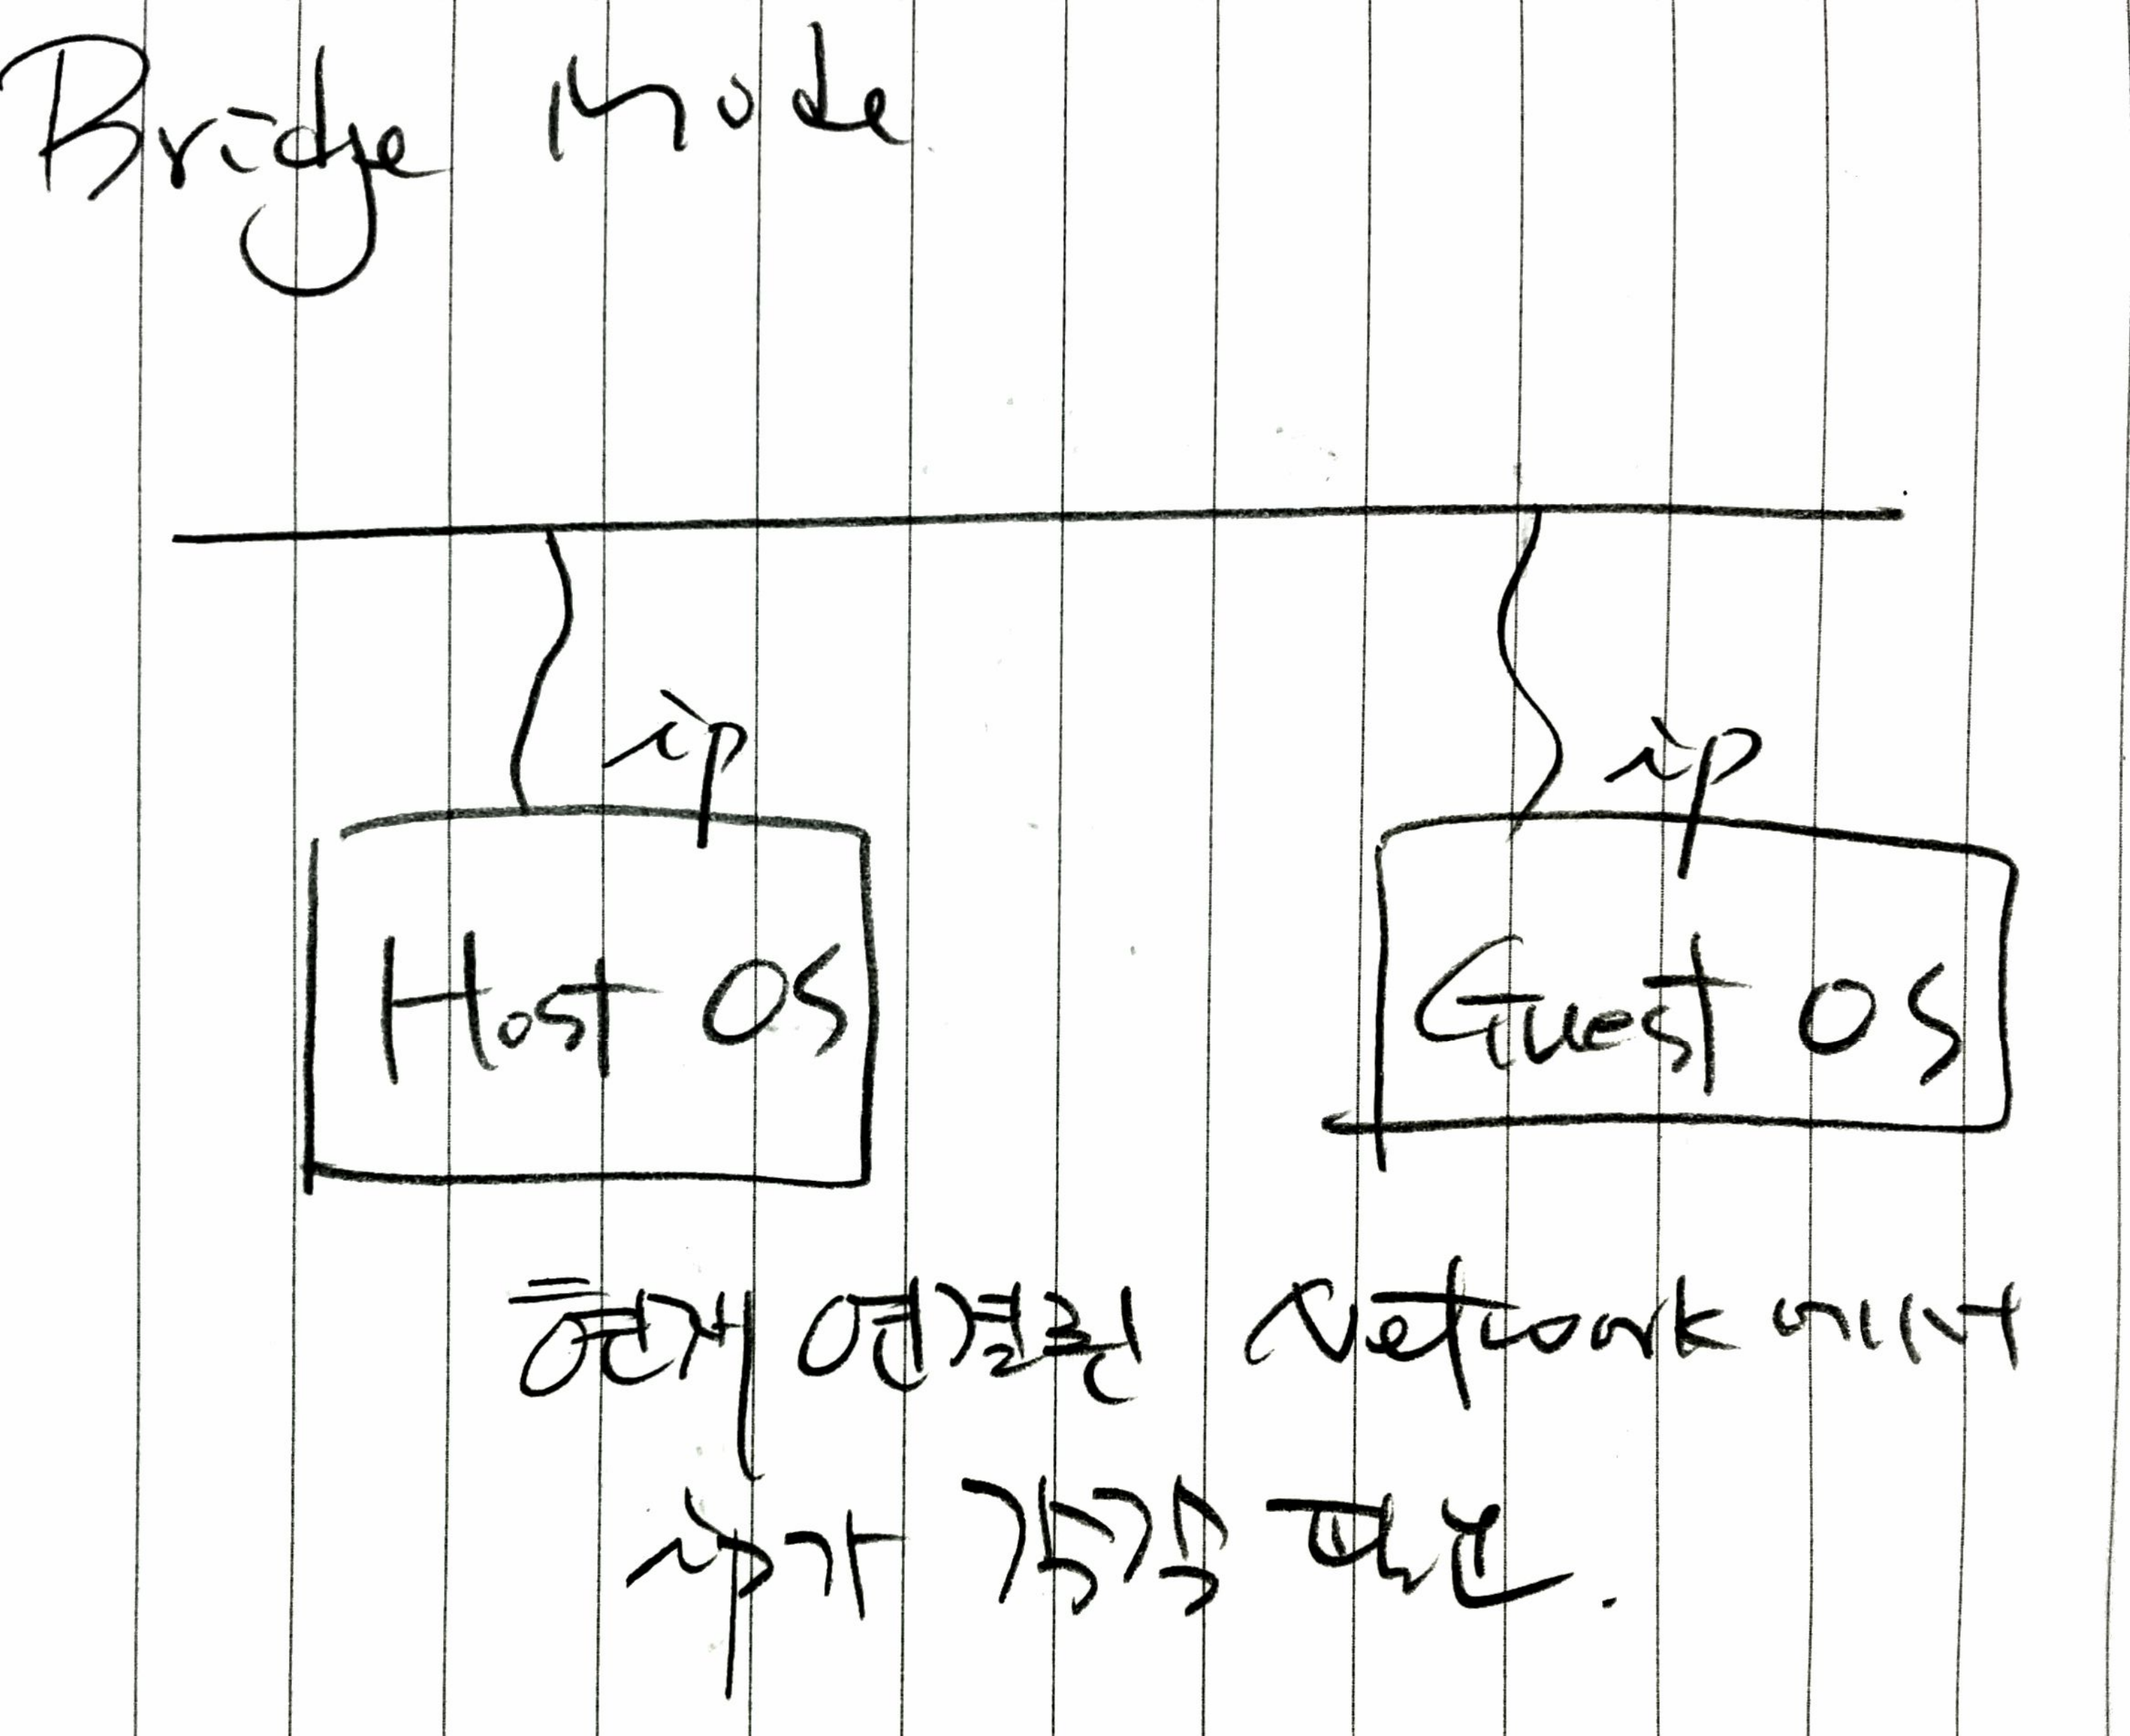 Bridge Mode
ip
ip
Host OS
Guest OS
현재 연결된 Network 에서
ip가 각각 필요.